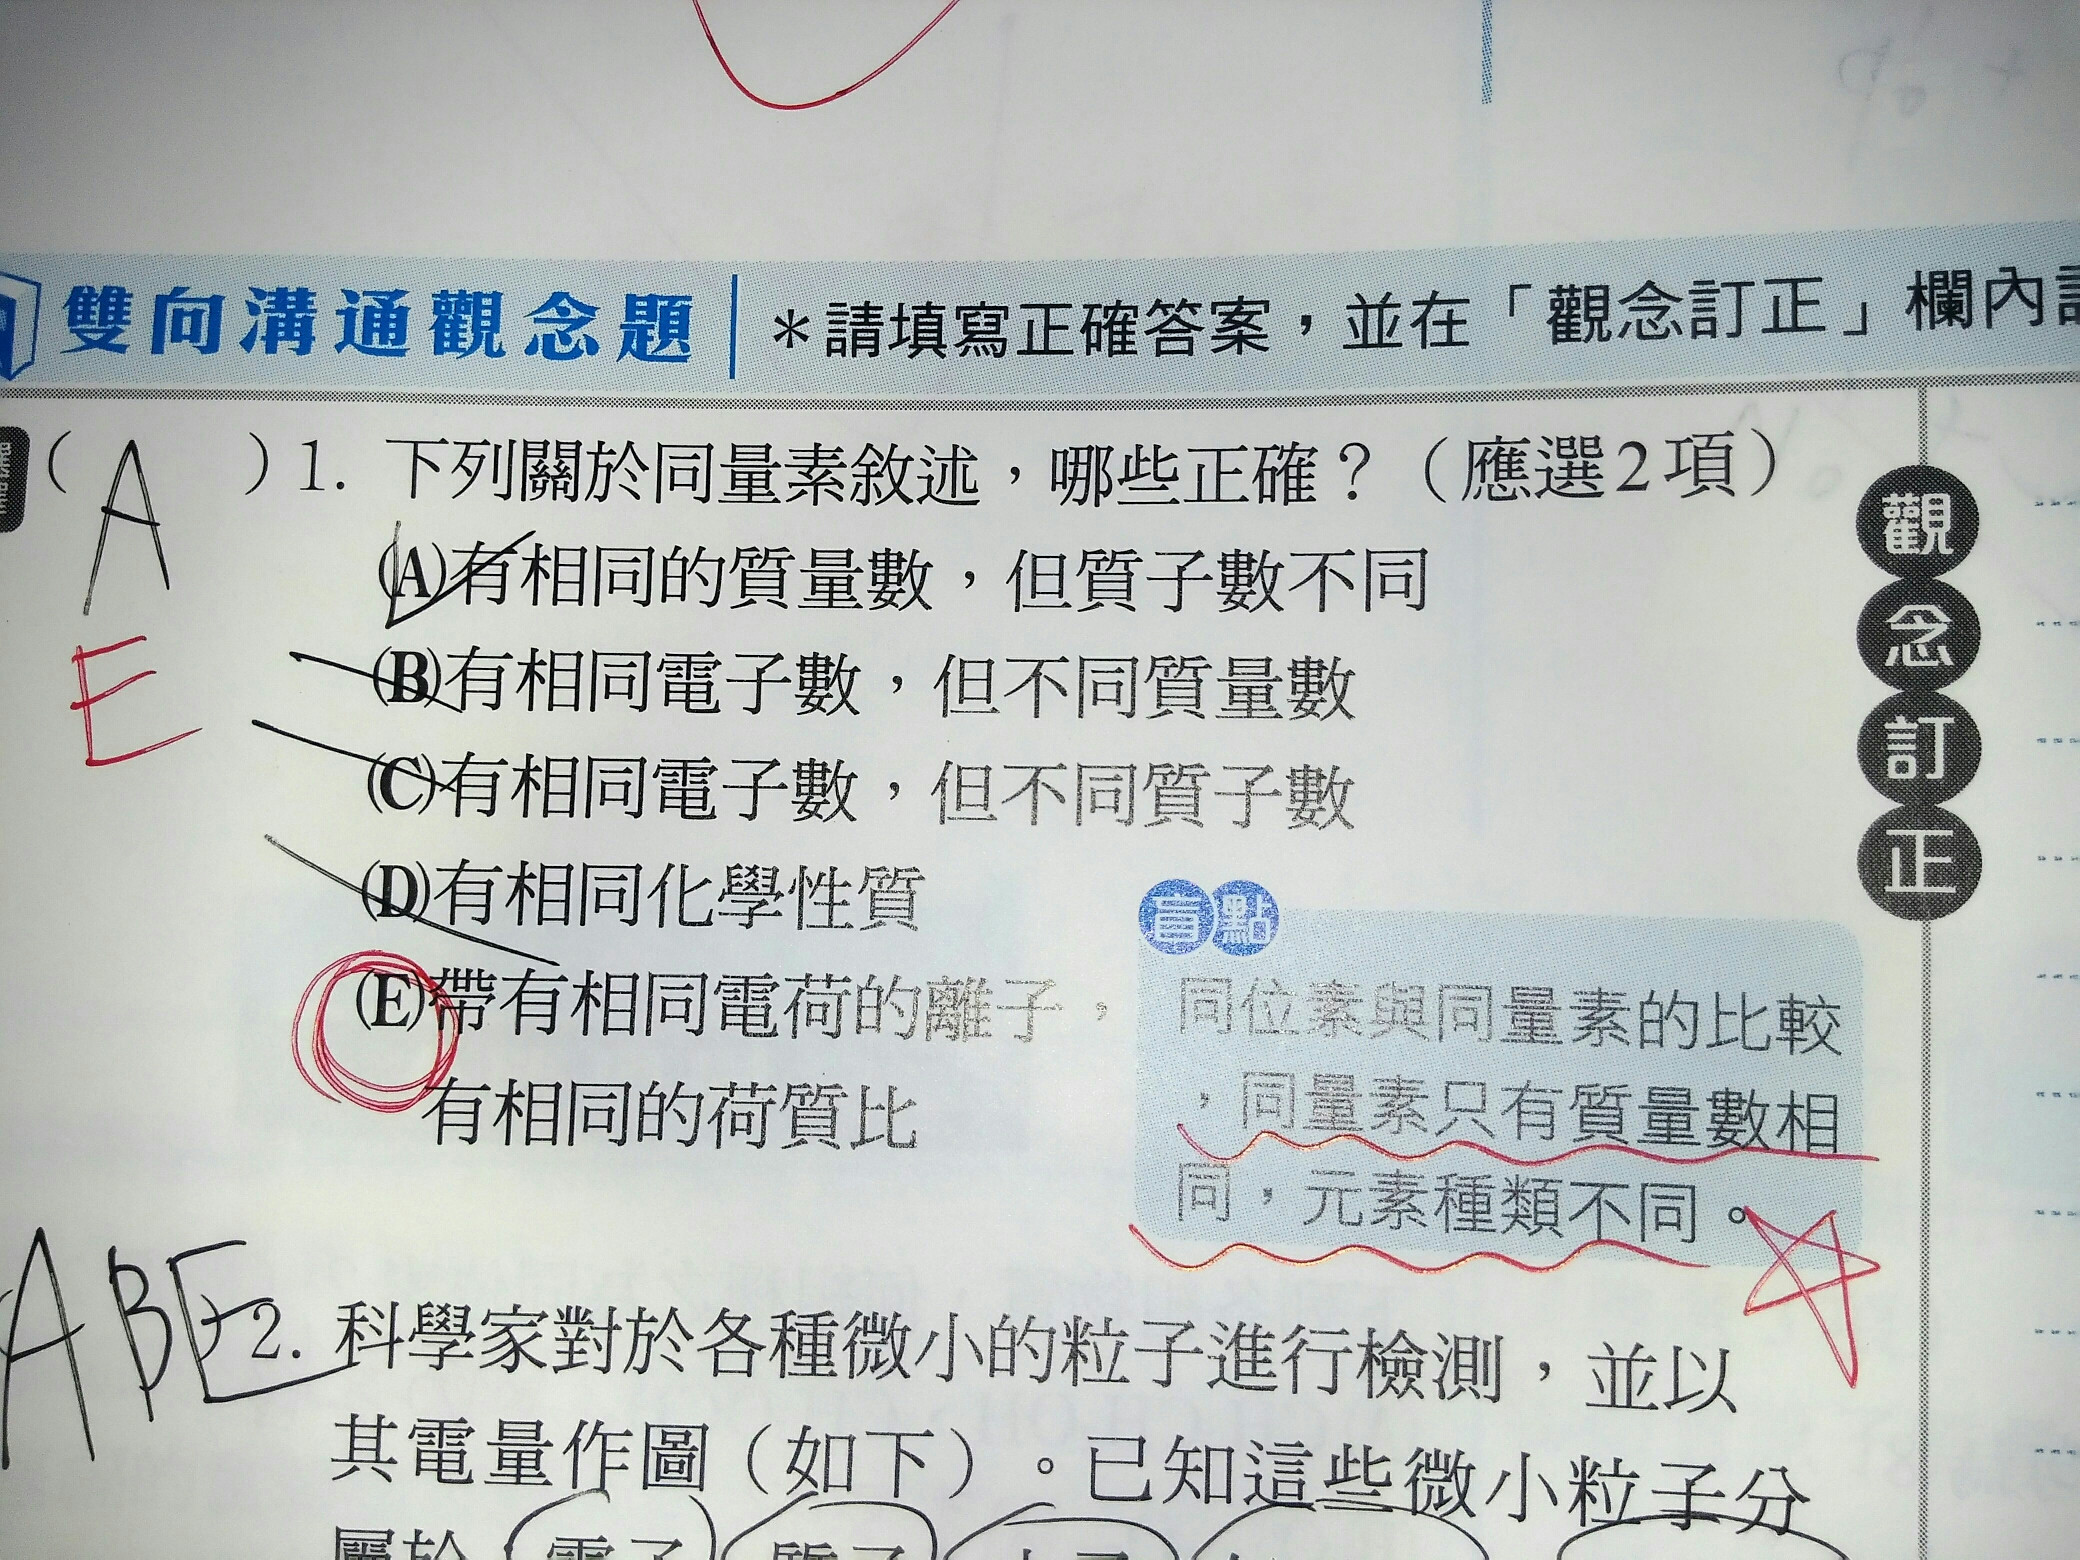 雙向溝通觀念題 ＊請填寫正確答案，並在「觀念訂正」欄內
( A E )1. 下列關於同量素敘述，哪些正確？（應選2項）
(A)有相同的質量數，但質子數不同
(B)有相同電子數，但不同質量數
(C)有相同電子數，但不同質子數
(D)有相同化學性質
(E)帶有相同電荷的離子，
有相同的荷質比
盲點
同位素與同量素的比較
，同量素只有質量數相
同，元素種類不同。
觀念訂正
ABE
2. 科學家對於各種微小的粒子進行檢測，並以
其電量作圖（如下）。已知這些微小粒子分
屬於 電子 質子